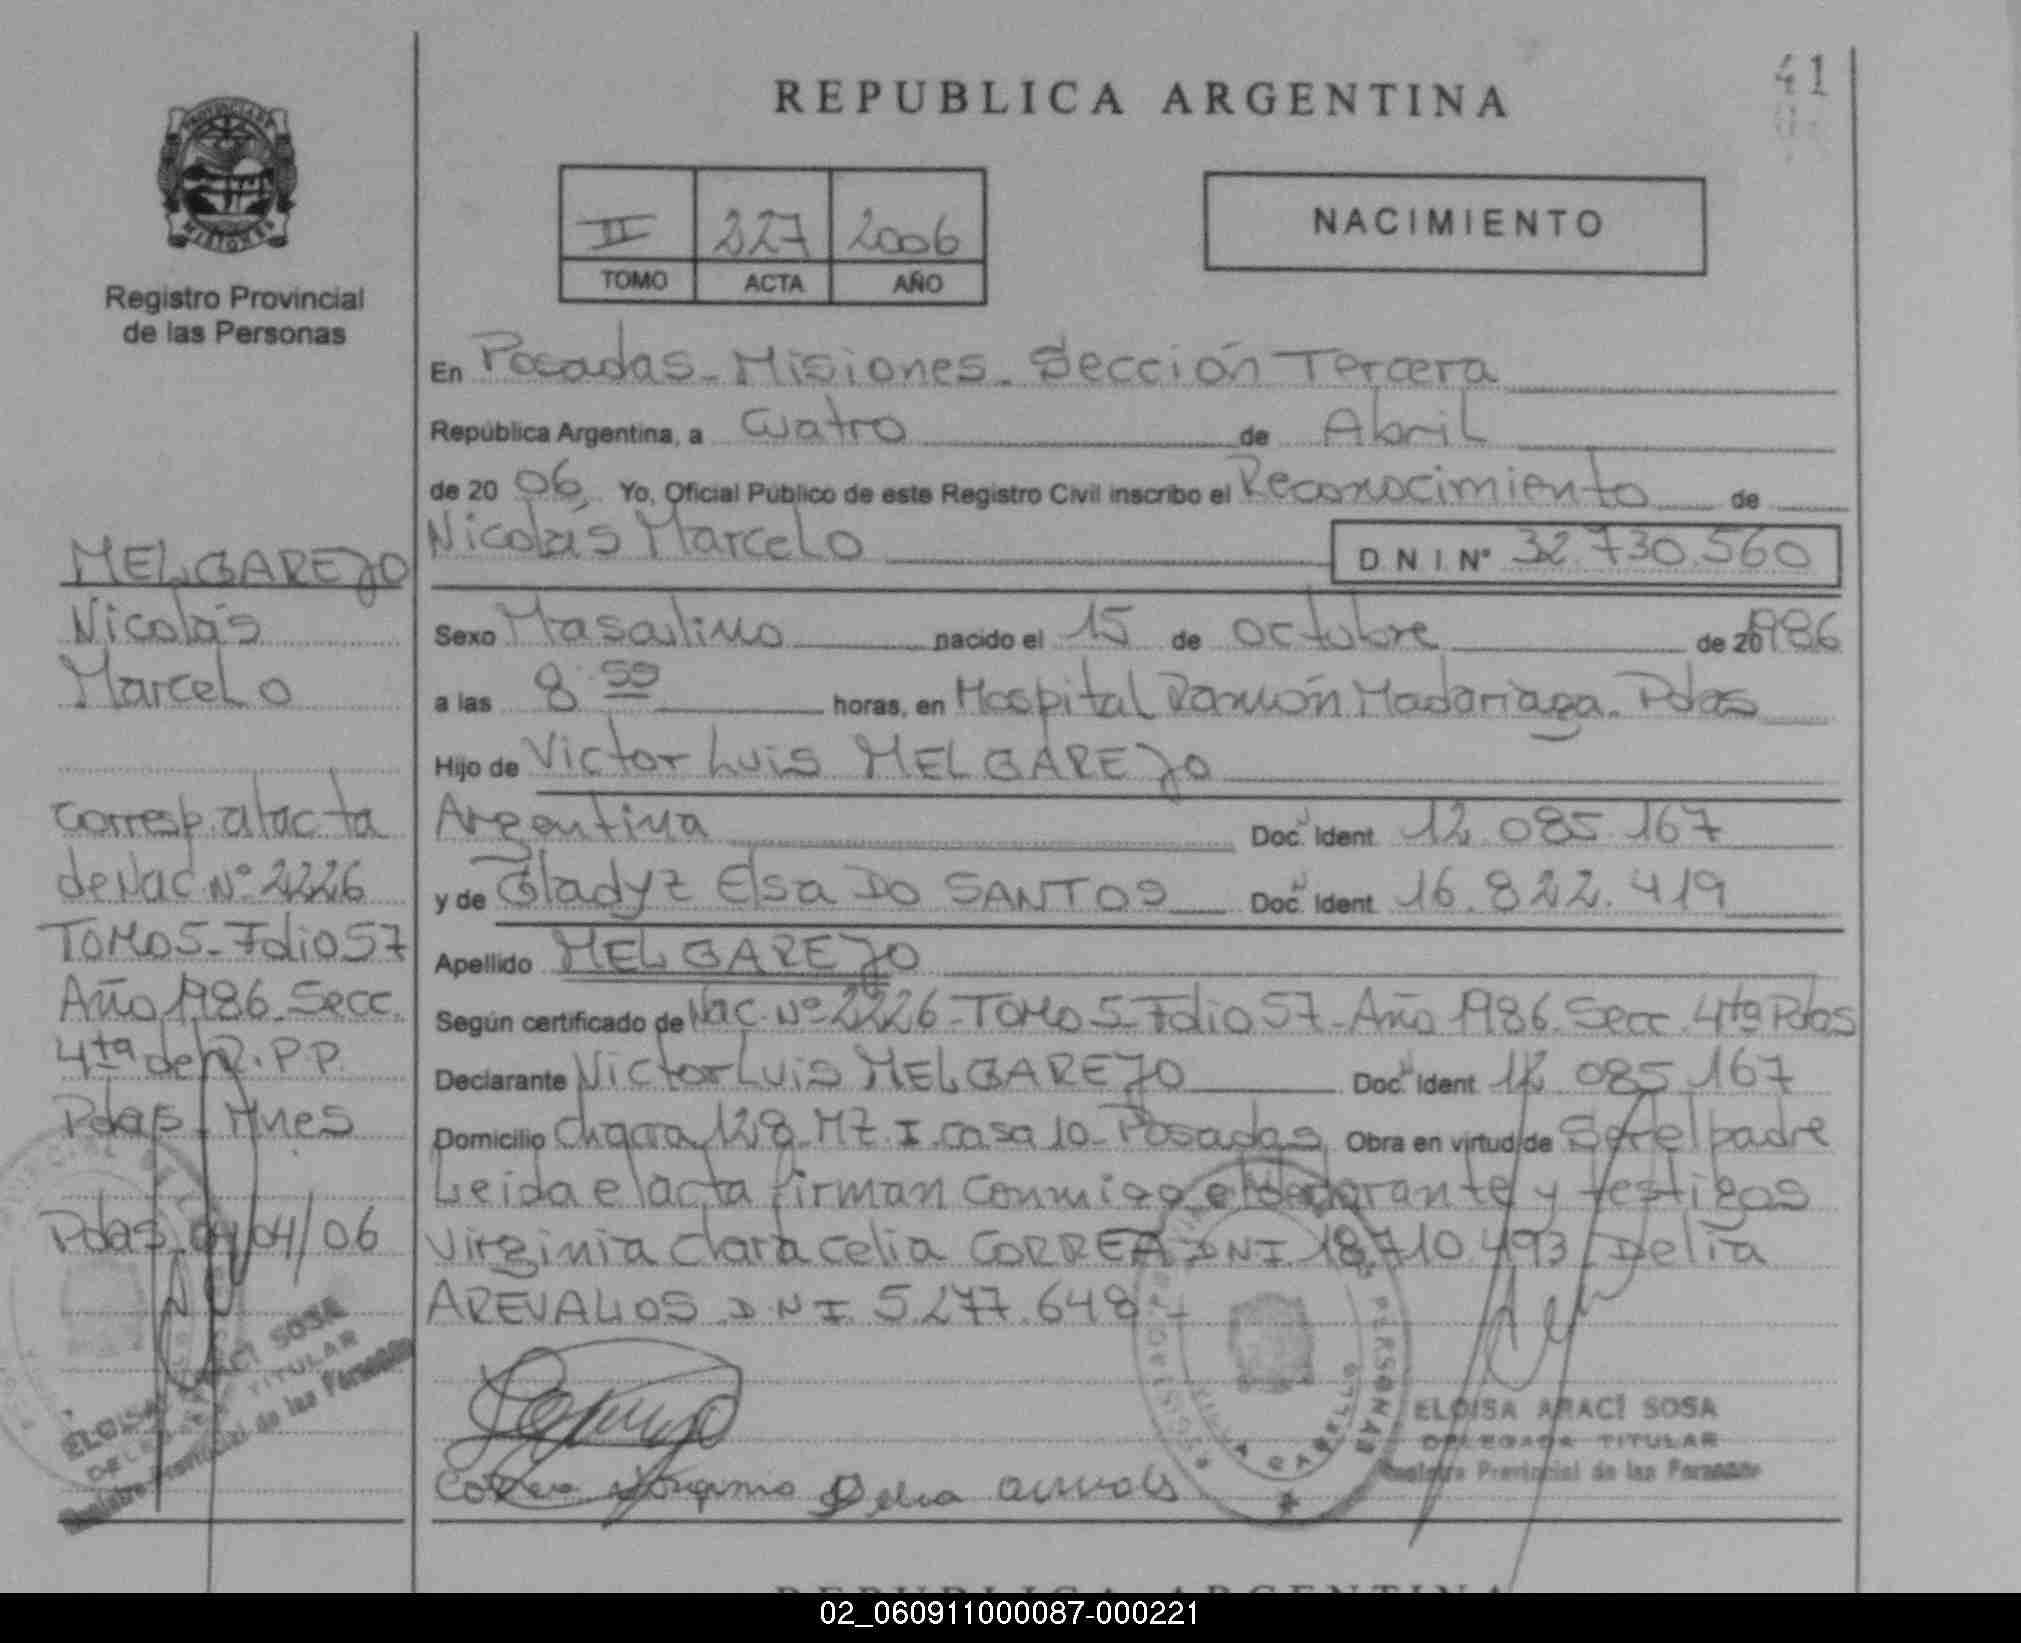 REPUBLICA ARGENTINA
41
PROVINCIA DE
MISIONES
Registro Provincial
de las Personas
II 227 2006
TOMO ACTA AÑO
NACIMIENTO
En Posadas - Misiones - Sección Tercera
República Argentina, a Cuatro de Abril
de 20 06 Yo, Oficial Público de este Registro Civil inscribo el Reconocimiento de
Nicolás Marcelo D.N.I. Nº 32.730.560
Sexo Masculino nacido el 15 de octubre de 20 1986
a las 8 59 horas, en Hospital Ramón Madariaga - Pdas
Hijo de Victor Luis MELGAREJO
Argentina Doc. Ident. 12.085.167
y de Gladyz Elsa DO SANTOS Doc. Ident. 16.822.419
Apellido MELGAREJO
Según certificado de Nac. Nº 2226 - Tomo 5 - Folio 57 - Año 1986. Secc. 4ta Pdas
Declarante Victor Luis MELGAREJO Doc. Ident. 12.085.167
Domicilio Chacra 128 MZ. I. casa 10 - Posadas Obra en virtud de Ser el padre
Leida el acta firman conmigo el declarante y testigos
Virginia Clara Celia CORREA DNI 18.710.493 Delia
AREVALOS D.N.I. 5.277.648 -
MELGAREJO
Nicolás
Marcelo
Corresp. al acta
de Nac Nº 2226
TOMO 5 - Folio 57
Año 1986 - Secc.
4ta del R.P.P.
Pdas - Mnes
Pdas 04/04/06
ELOISA ARACÍ SOSA
DELEGADA TITULAR
Registro Provincial de las Personas
ELOISA ARACÍ SOSA
DELEGADA TITULAR
Registro Provincial de las Personas
VILLA CABELLO
PERSONAS
Correa Virginia Delia Arevalos
REPUBLICA ARGENTINA
02_060911000087-000221